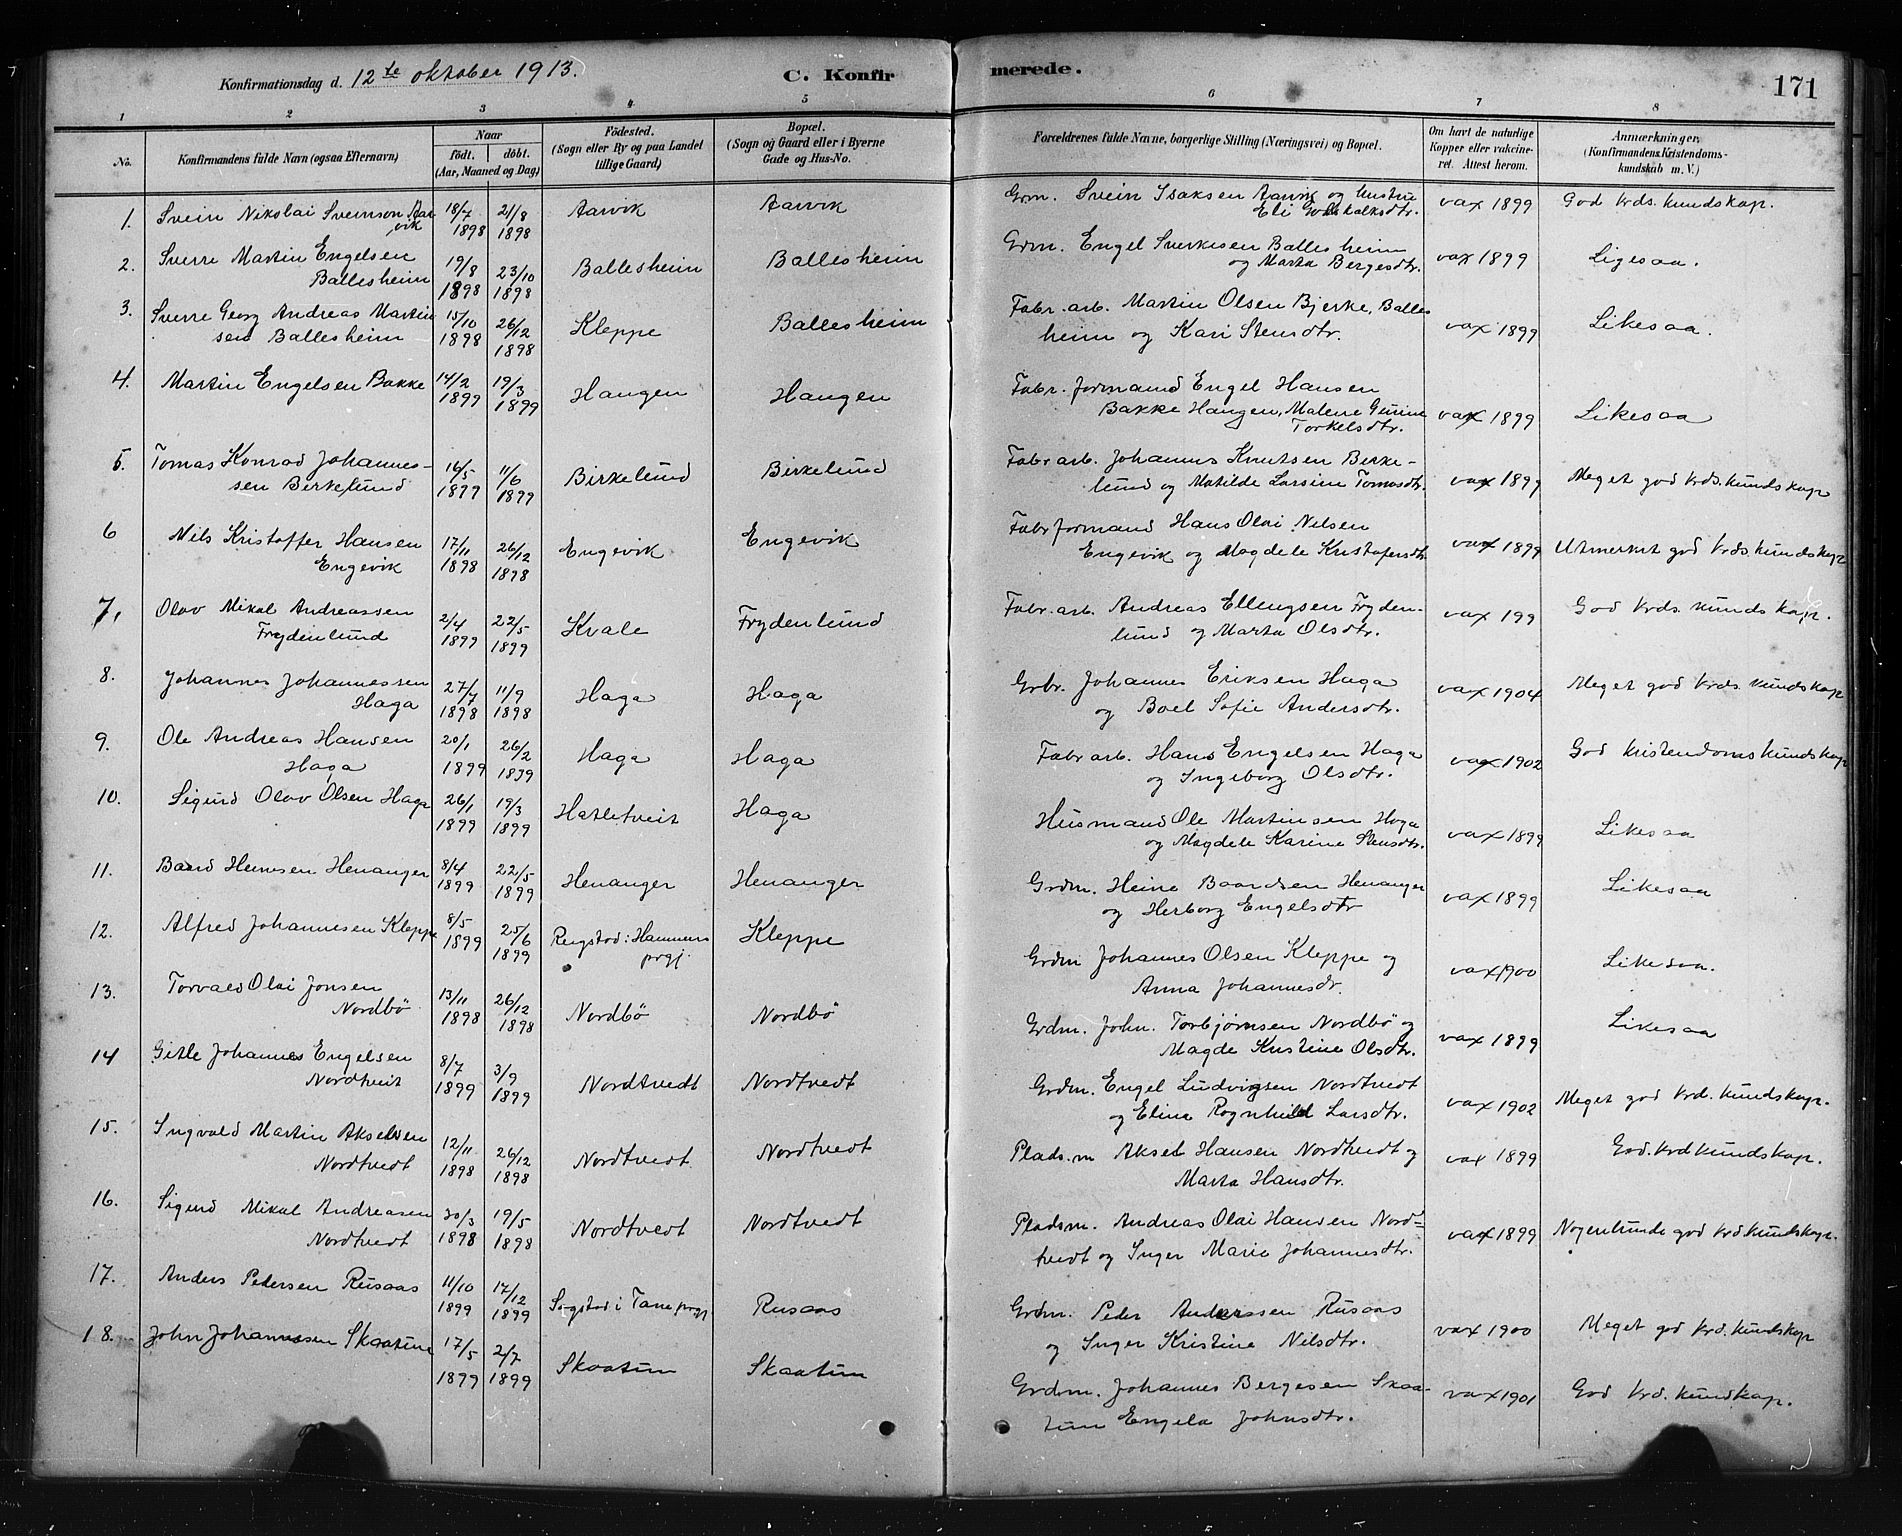 Konfirmationsdag d. 12te oktober 1913. C. Konfirmerede. 171
1 2 3 4 5 6 7 8
No. Konfirmandens fulde Navn (ogsaa Efternavn) Naar födt. döbt. (Aar, Maaned og Dag) Födested. (Sogn eller By og paa Landet tillige Gaard) Bopæl. (Sogn og Gaard eller i Byerne Gade og Hus-No. Forældrenes fulde Navne, borgerlige Stilling (Næringsvei) og Bopæl. Om havt de naturlige Kopper eller vakcineret. Attest herom. Anmærkninger. (Konfirmandens Kristendomskundskab m. V.)
1. Svein Nikolai Sveinson Aarvik 18/7 1898 21/8 1898 Aarvik Aarvik Grm. Svein Isaksen Aarvik og hustru Eli Godskalksdtr. vax 1899 God krds. kundskap.
2. Sverre Martin Engelsen Ballesheim 19/8 1898 23/10 1898 Ballesheim Ballesheim Grdm. Engel Sverkesen Ballesheim og Marta Bergesdtr. vax 1899 Ligesaa.
3. Sverre Georg Andreas Martinsen Ballesheim 15/10 1898 26/12 1898 Kleppe Ballesheim Fabr. arb. Martin Olsen Bjerke, Ballesheim og Kari Stensdtr. vax 1899 Likesaa.
4. Martin Engelsen Bakke 14/2 1899 19/3 1899 Haugen Haugen Fabr. formand Engel Hansen Bakke Haugen, Malene Gurine Torkelsdtr. vax 1899 Likesaa
5. Tomas Konrad Johannessen Birkelund 16/5 1899 11/6 1899 Birkelund Birkelund Fabr arb. Johannes Knutsen Birkelund og Matilde Larsine Tomasdtr. vax 1899 Meget god krds. kundskap
6 Nils Kristoffer Hansen Engevik 17/11 1898 26/12 1898 Engevik Engevik Fabr formand Hans Olai Nilsen Engevik og Magdele Kristofersdtr vax 1899 Utmerket god krds kundskap
7. Olav Mikal Andreassen Frydenlund 2/4 1899 22/5 1899 Kvale Frydenlund Fabr. arb. Andreas Ellengsen Frydenlund og Marta Olsdtr. vax 199 God krds. kundskap.
8. Johannes Johannessen Haga 27/7 1898 11/9 1898 Haga Haga Grbr. Johannes Eriksen Haga og Boel Sofie Andersdtr. vax 1904 Meget god krds. kundskap
9. Ole Andreas Hansen Haga 20/1 1899 26/2 1899 Haga Haga Fabr arb. Hans Engelsen Haga og Ingeborg Olsdtr. vax 1902 God kristendomskundskap
10. Sigurd Olav Olsen Haga 26/1 1899 19/3 1899 Hatletveit Haga Husmand Ole Martinsen Haga og Magdele Karine Stensdtr. vax 1899 Likesaa
11. Baard Heinesen Henanger 8/4 1899 22/5 1899 Henanger Henanger Grdm. Heine Baardsen Henanger og Herborg Engelsdtr vax 1899 Likesaa
12. Alfred Johannesen Kleppe 8/5 1899 25/6 1899 i Hammers prgj. Kleppe Grdm Johannes Olsen Kleppe og Anna Johannesdr. vax 1900 Likesaa.
13. Torvald Olai Jonsen Nordbö 13/11 1898 26/12 1898 Nordbö Nordbö Grdm. John. Torbjørnsen Nordbö og Magde Kristine Olsdtr. vax 1899 Likesaa
14 Gitle Johannes Engelsen Nordtveit 8/7 1899 3/9 1899 Nordtvedt Nordtvedt Grdm. Engel Ludvigsen Nordtvedt og Elina Ragnhild Larsdtr. vax 1902 Meget god krd. kundskap.
15. Ingvald Martin Akselsen Nordtvedt 12/11 1898 26/12 1898 Nordtvedt Nordtvedt Plads.m Aksel Hansen Nordtvedt og Marta Hansdtr. vax 1899 God. krdkundskap.
16. Sigurd Mikal Andreasen Nordtvedt 30/3 1898 19/5 1898 Nordtvedt Nordtvedt Pladsm. Andreas Olai Hansen Nordtvedt og Inger Marie Johannesdtr. vax 1899 Nogenlunde god krd.kundskap.
17. Anders Pedersen Rusaas 11/10 1899 17/12 1899 Sogstad i Tane prgj. Rusaas Grdm. Peder Anderssen Rusaas og Inger Kristine Nilsdtr. vax 1900 Meget god krd. kundskap
18. John Johannessen Skaatun 17/5 1899 2/7 1899 Skaatun Skaatun Grdm. Johannes Bergesen Skaatun Engela Johnsdtr. vax 1901 God krd. kundskap.